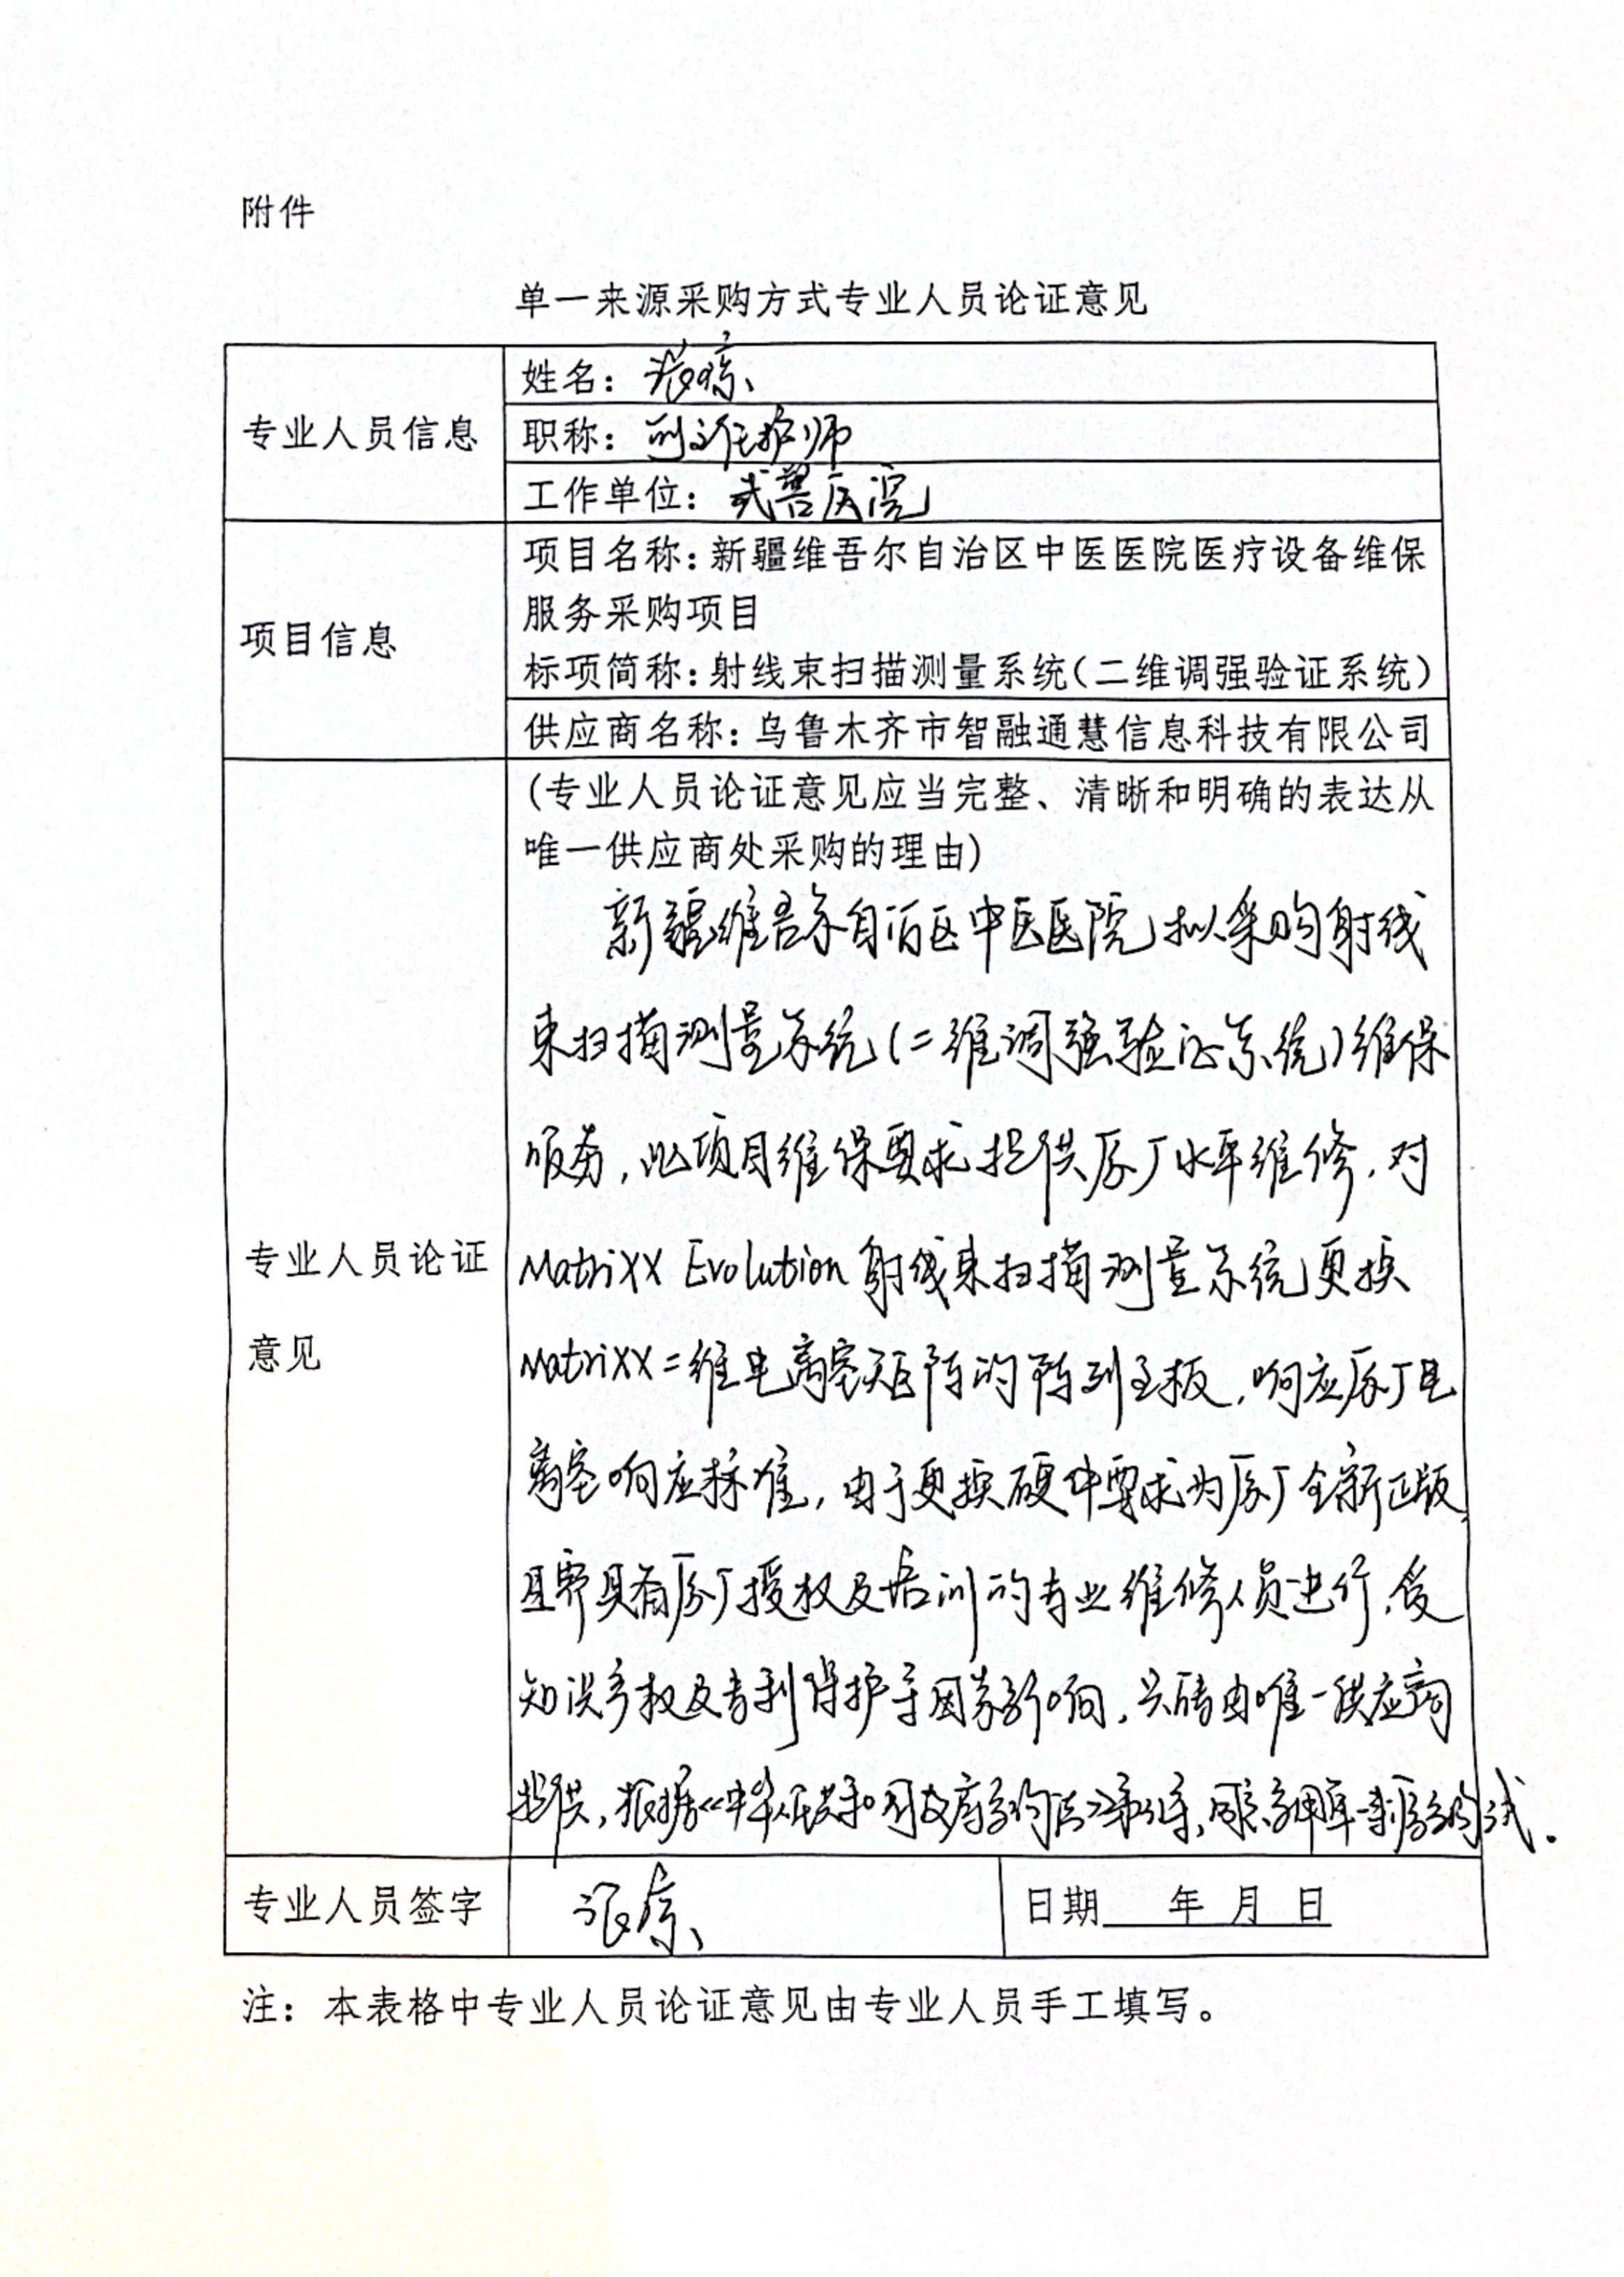 附件
单一来源采购方式专业人员论证意见
专业人员信息
姓名：
职称：副主任护师
工作单位：武警医院
项目信息
项目名称：新疆维吾尔自治区中医医院医疗设备维保
服务采购项目
标项简称：射线束扫描测量系统（二维调强验证系统）
供应商名称：乌鲁木齐市智融通慧信息科技有限公司
专业人员论证
意见
（专业人员论证意见应当完整、清晰和明确的表达从
唯一供应商处采购的理由）
新疆维吾尔自治区中医医院拟采购射线
束扫描测量系统（二维调强验证系统）维保
服务，此项目维保要求提供原厂水平维修，对
MatriXX Evolution 射线束扫描测量系统更换
MatriXX二维电离室矩阵的阵列主板，响应原厂电
离室响应标准，由于更换硬件要求为原厂全新正版，
且需具有原厂授权及培训的专业维修人员进行，受
知识产权及专利保护等因素影响，只能由唯一供应商
提供，根据《中华人民共和国政府采购法》第31条，同意采用单一来源采购方式。
专业人员签字
日期 年 月 日
注：本表格中专业人员论证意见由专业人员手工填写。